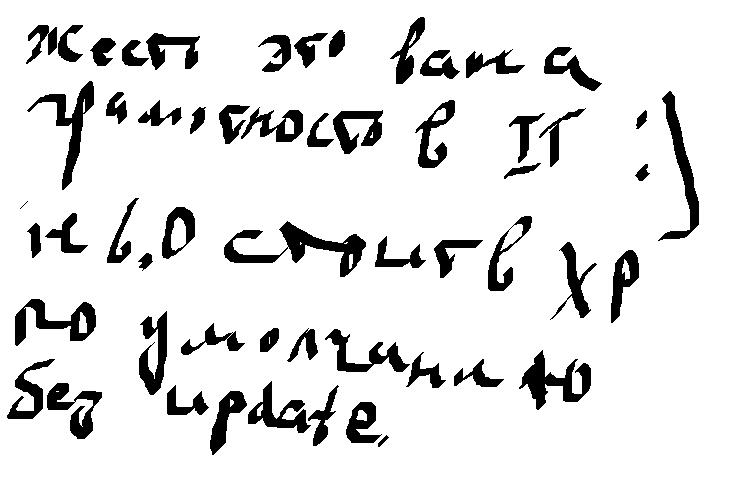 жесть это ваша
грамотность в IT :)
ие 6.0 стоит в xp
по умолчанию
без update.